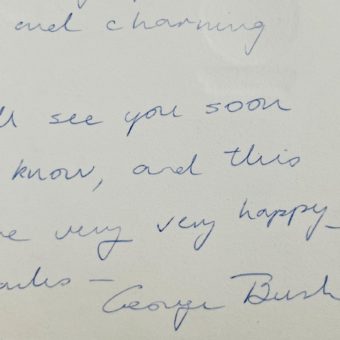 and charming
see you soon
know, and this
very very happy –
– George Bush